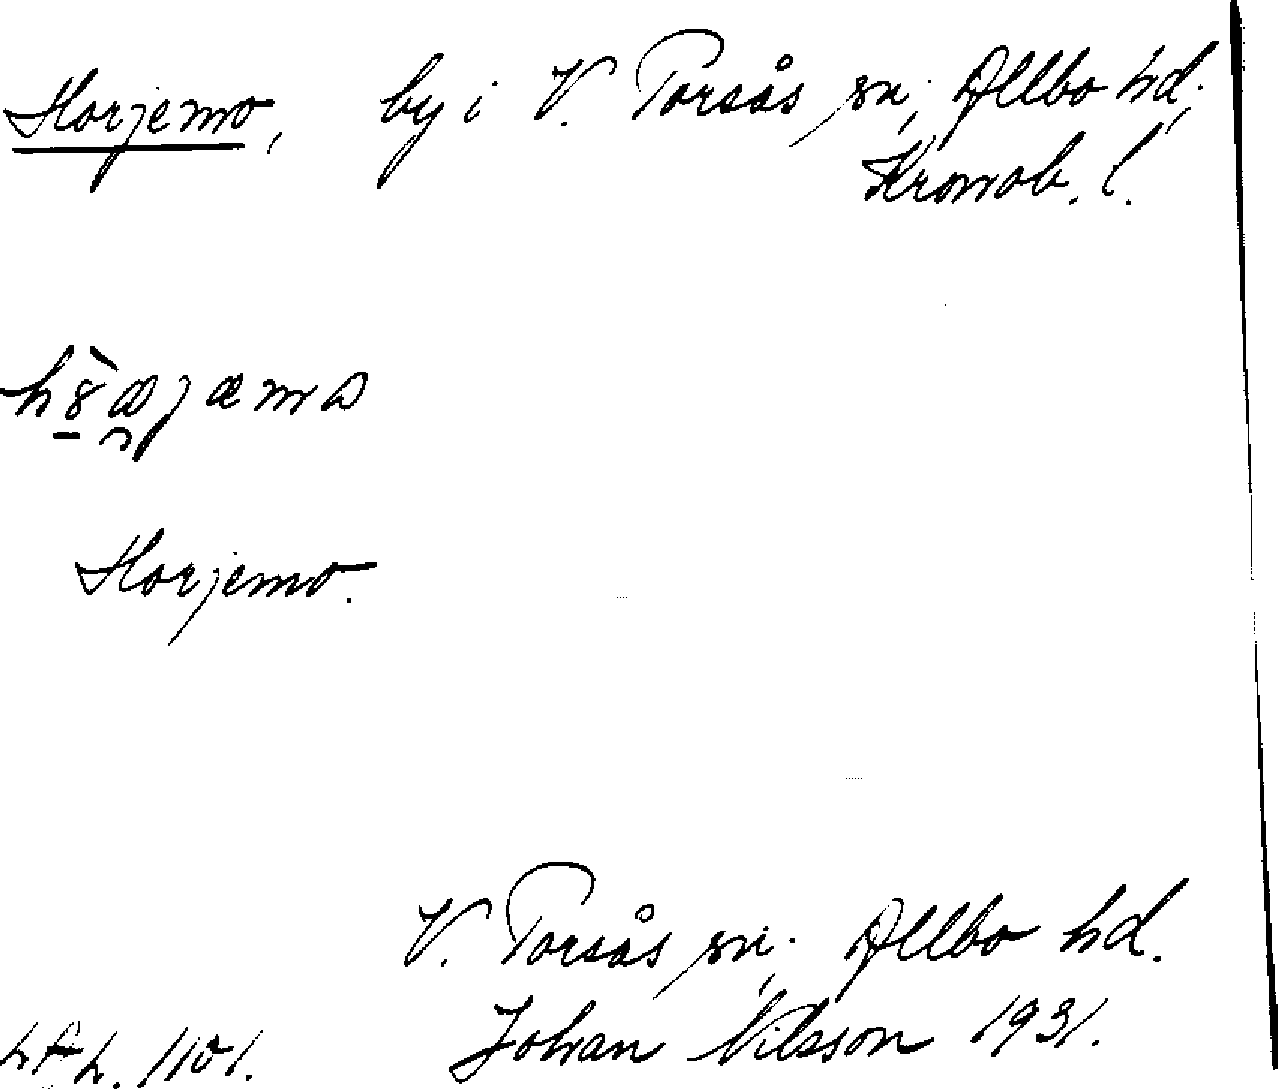 Horjemo, by i V. Torsås sn; Allbo hd;
Kronob. l.
Horjemo.
V. Torsås sn; Allbo hd.
Johan Nilsson 1931.
1101.